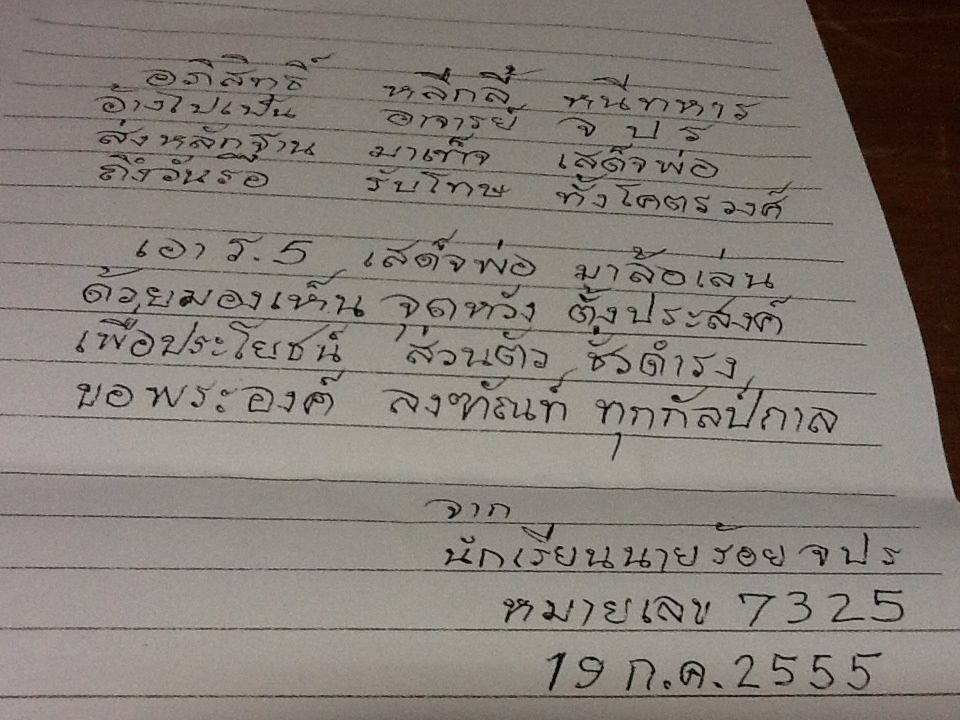 อภิสิทธิ์ หลีกลี้ หนีทหาร
อ้างไปเป็น อาจารย์ จ ป ร
ส่งหลักฐาน มาเท็จ เสด็จพ่อ
ถึงวันรอ รับโทษ ทั้งโคตรวงศ์
เอา ร.5 เสด็จพ่อ มาล้อเล่น
ด้วยมองเห็น จุดหวัง ตั้งประสงค์
เพื่อประโยชน์ ส่วนตัว ชั่วดำรง
ขอพระองค์ ลงฑัณท์ ทุกกัลป์กาล
จาก
นักเรียนนายร้อย จปร
หมายเลข 7325
19 ก.ค.2555